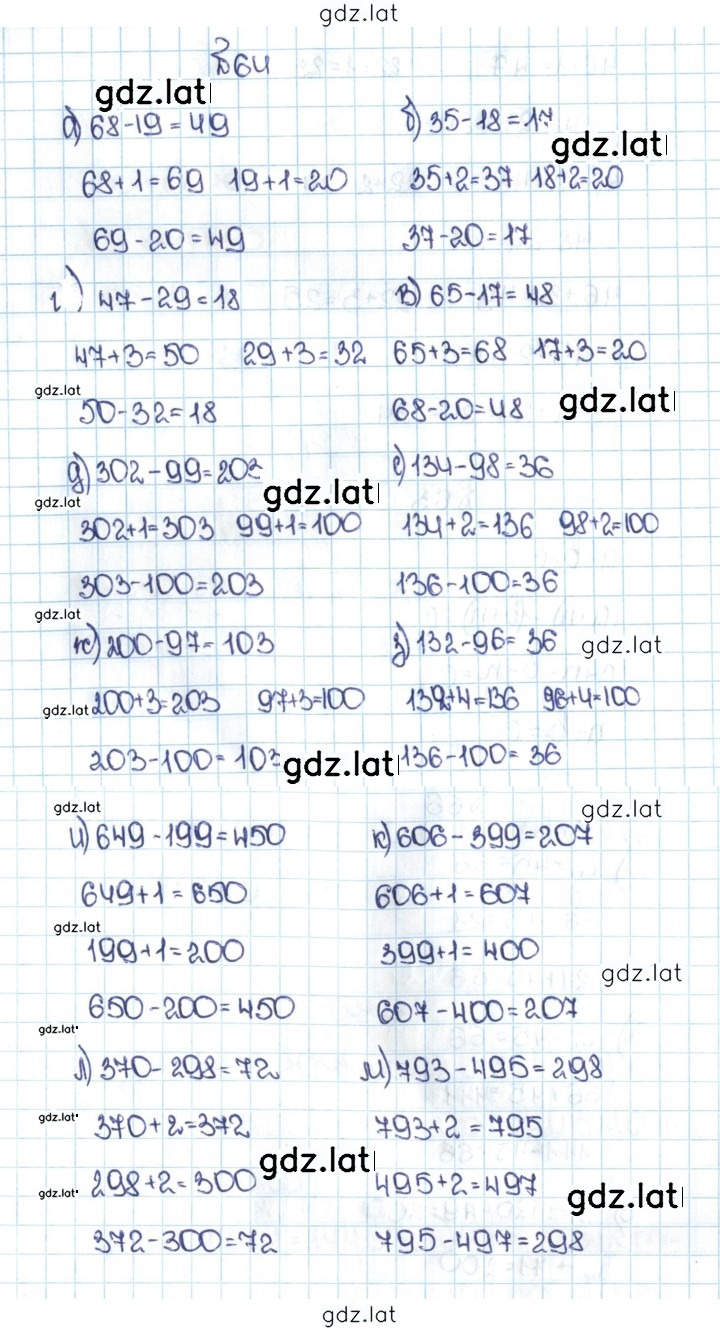 gdz.lat
Б64
gdz.lat
а) 68-19=49 б) 35-18=17
gdz.lat
68+1=69 19+1=20 35+2=37 18+2=20
69-20=49 37-20=17
г) 47-29=18 в) 65-17=48
47+3=50 29+3=32 65+3=68 17+3=20
gdz.lat
50-32=18 68-20=48 gdz.lat
д) 302-99=203 е) 134-98=36
gdz.lat gdz.lat
302+1=303 99+1=100 134+2=136 98+2=100
303-100=203 136-100=36
gdz.lat
ж) 200-97=103 з) 132-96=36 gdz.lat
gdz.lat 200+3=203 97+3=100 132+4=136 96+4=100
203-100=103 gdz.lat 136-100=36
gdz.lat gdz.lat
и) 649-199=450 к) 606-399=207
649+1=650 606+1=607
gdz.lat
199+1=200 399+1=400
gdz.lat
650-200=450 607-400=207
gdz.lat
л) 370-298=72 м) 793-495=298
gdz.lat 370+2=372 793+2=795
gdz.lat
gdz.lat 298+2=300 495+2=497 gdz.lat
372-300=72 795-497=298
gdz.lat